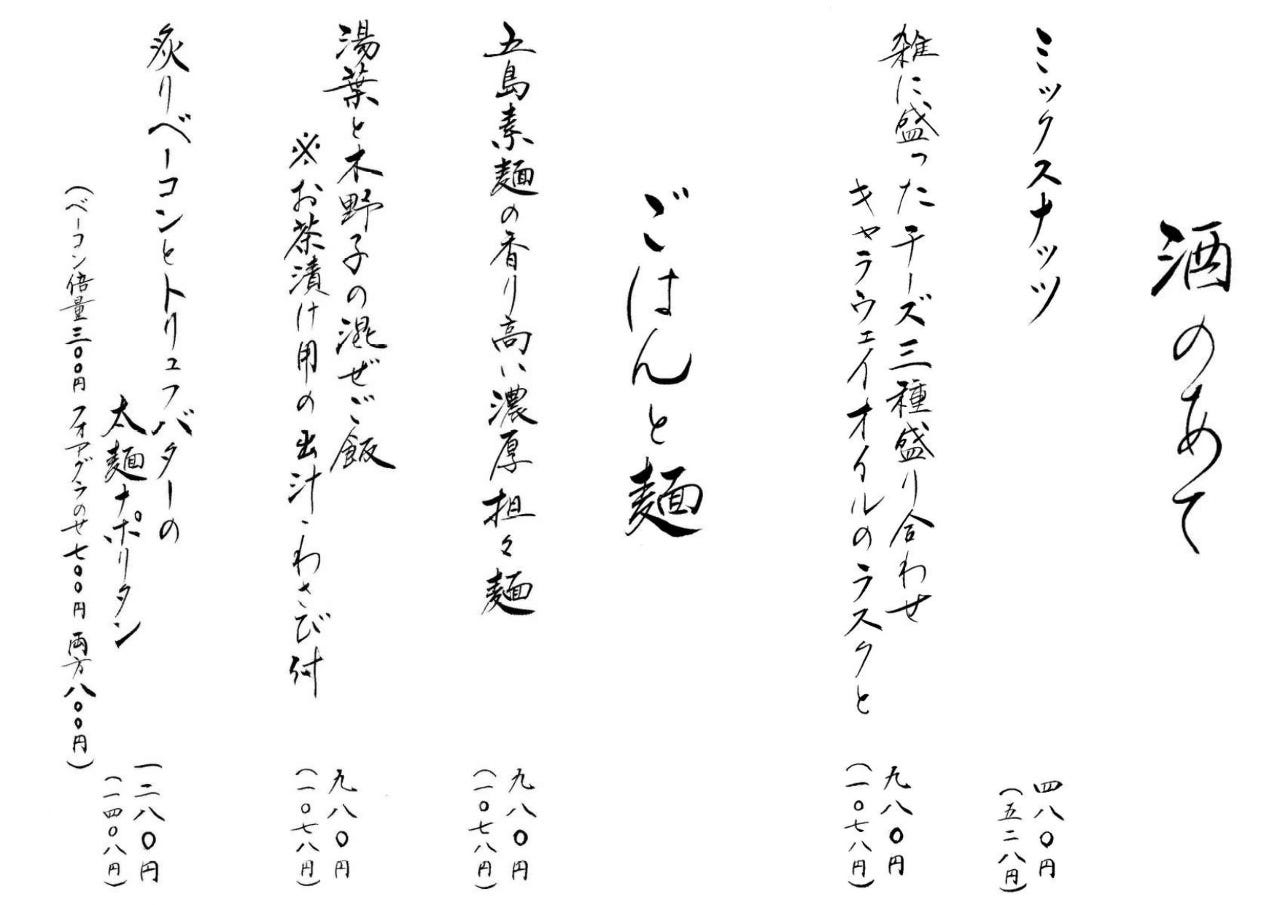 酒のあて
ミックスナッツ
四八〇円
(五二八円)
雑に盛ったチーズ三種盛り合わせ
キャラウェイオイルのラスクと
九八〇円
(一〇七八円)
ごはんと麺
五島素麺の香り高い濃厚担々麺
九八〇円
(一〇七八円)
湯葉と木野子の混ぜご飯
※お茶漬け用の出汁・わさび付
九八〇円
(一〇七八円)
炙りベーコンとトリュフバターの
太麺ナポリタン
一二八〇円
(一四〇八円)
(ベーコン倍量三〇〇円 フォアグラのせ七〇〇円 両方八〇〇円)